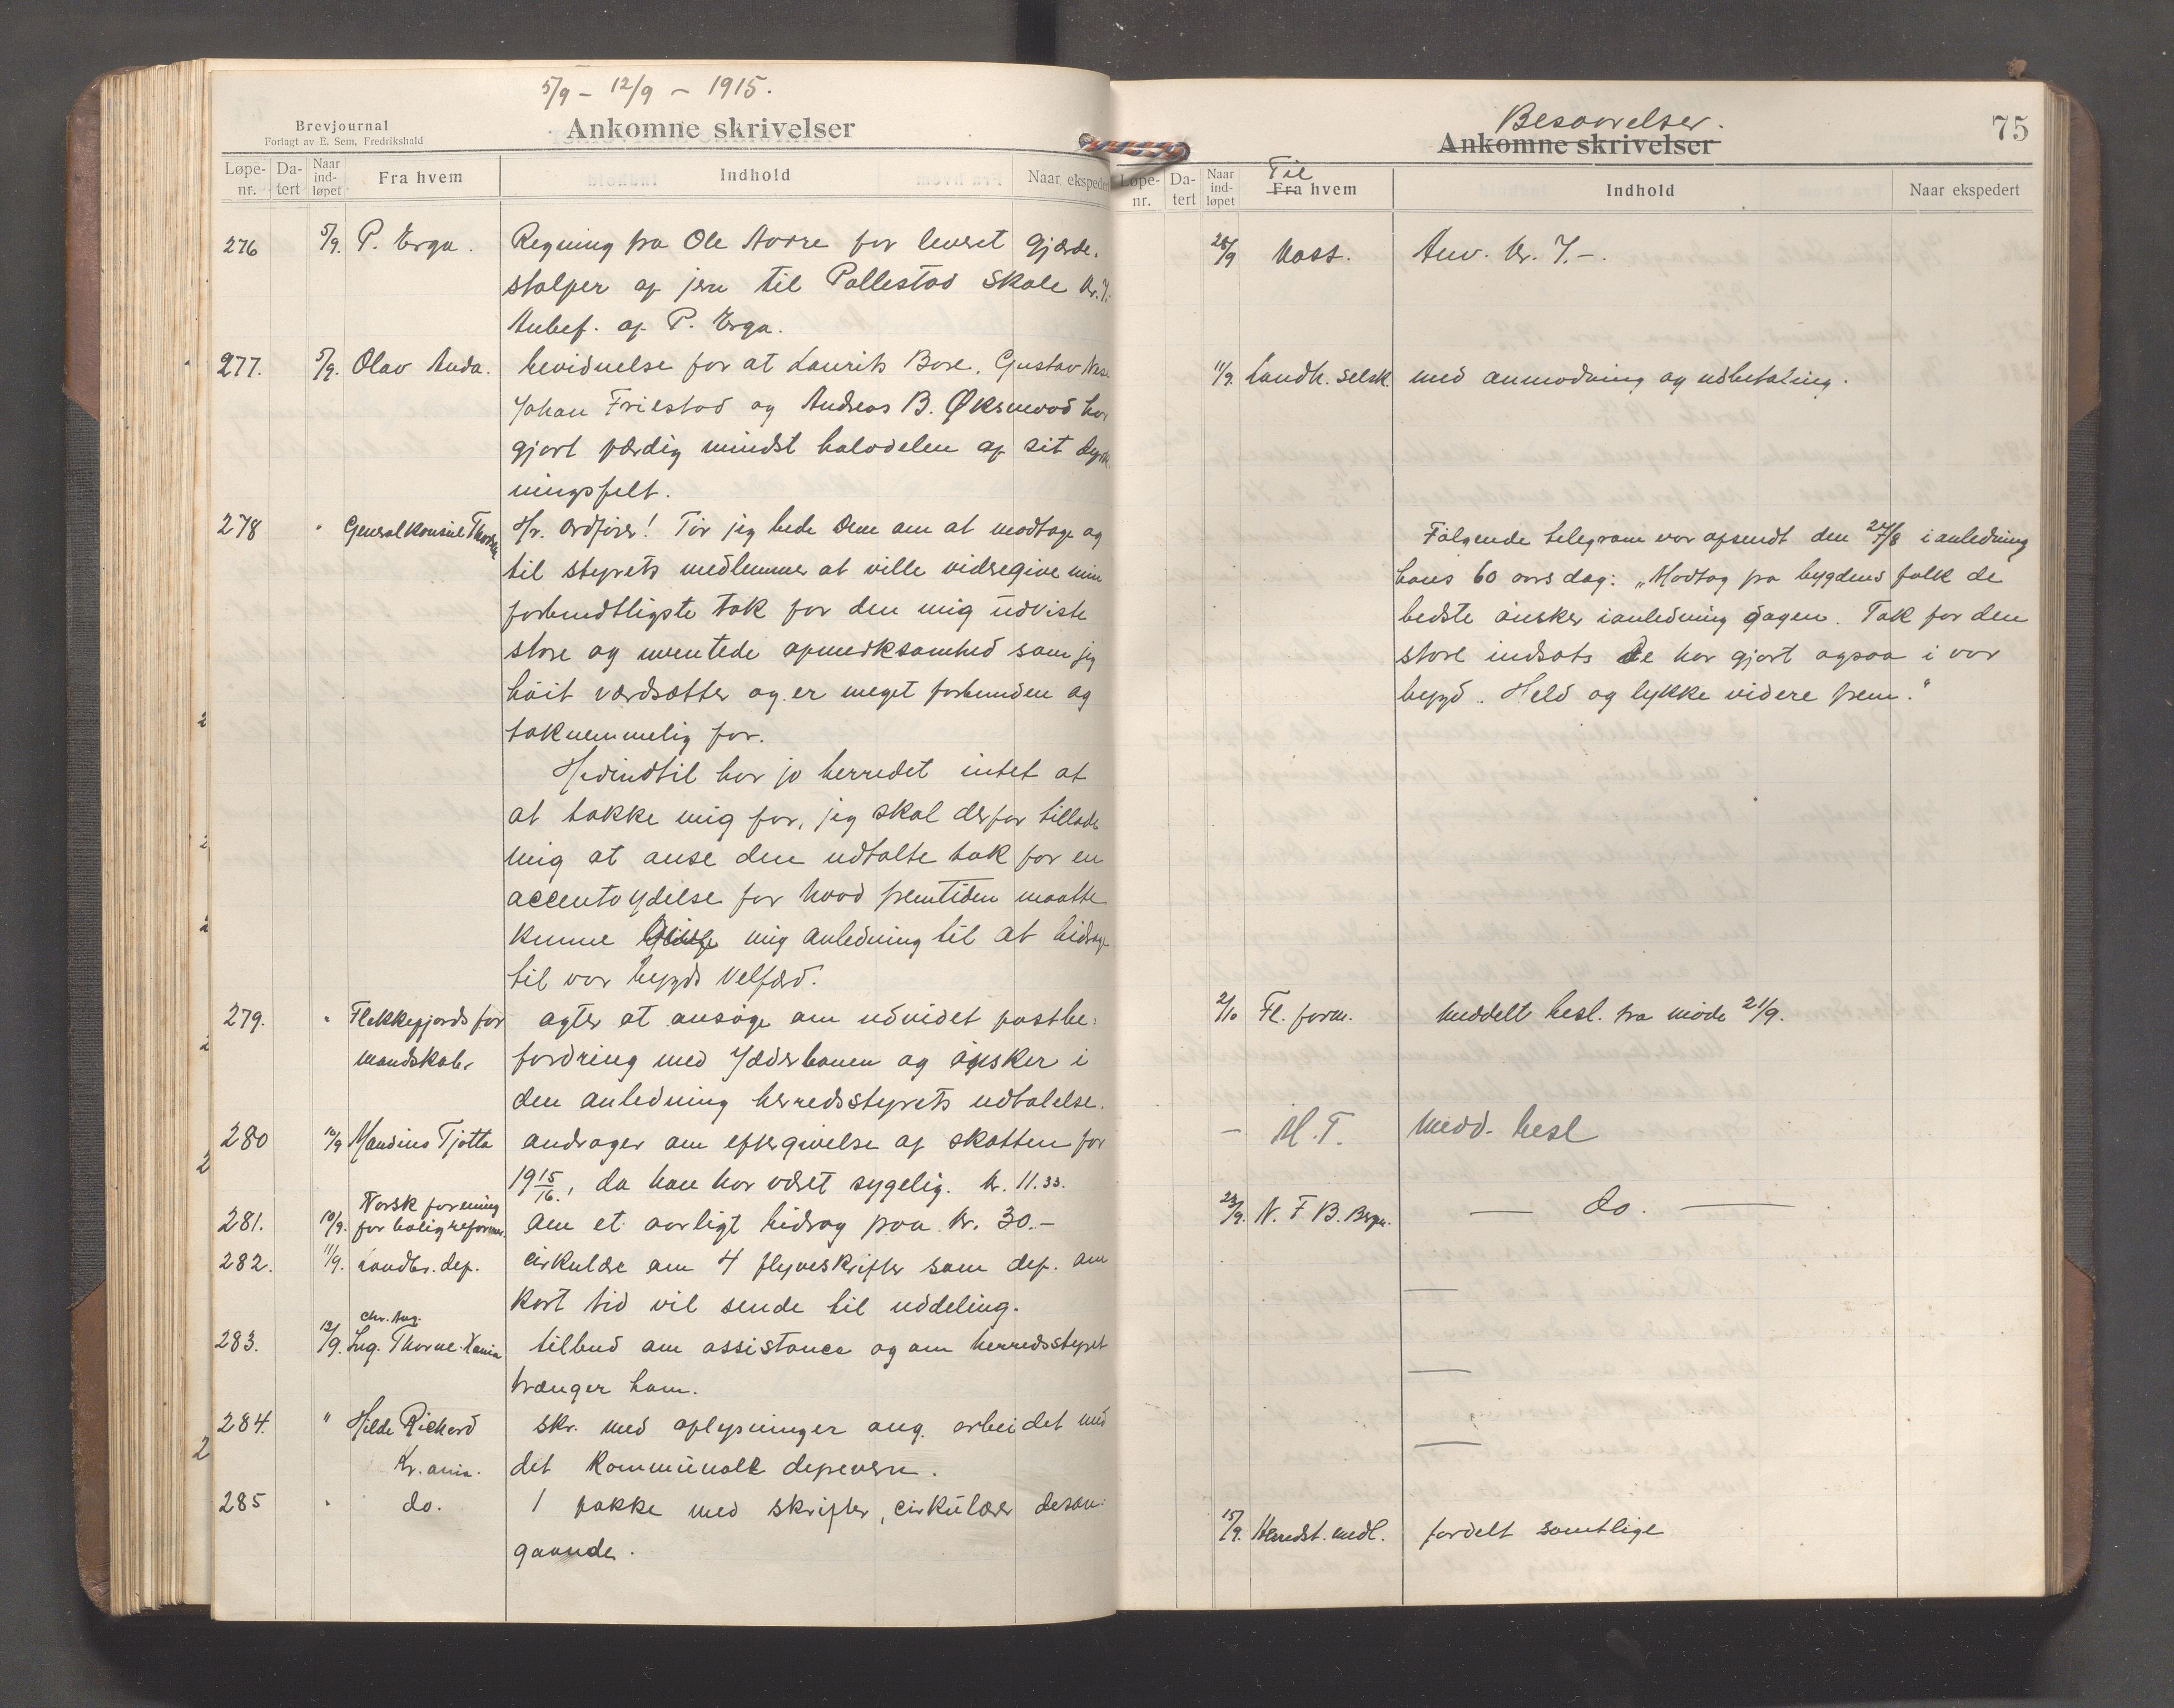 5/9 – 12/9 – 1915.
Brevjournal
Forlagt av E. Sem, Fredrikshald
Ankomne skrivelser
Løpe-nr. Da-tert Naar ind-løpet Fra hvem Indhold Naar ekspedert
276 5/9. P. Erga. Regning fra Ole Aarre for leveret gjærde-
stolper af jern til Pollestad skole kr. 7.
Anbef. af P. Erga.
277. 5/9. Olav Anda. bevidnelse for at Laurits Bore, Gustav Næse
Johan Friestad og Andreas B. Øksnevad har
gjort færdig mindst halvdelen af sit dyrk
ningsfelt.
278 " Generalkonsul Hr. Ordfører! Tør jeg bede Dem om at modtage og
til styrets medlemmer at ville videregive min
forbindtligste tak for den mig udviste
store og uventede opmerksomhed som jeg
høit værdsætter og er meget forbunden og
taknemmelig for.
Hidindtil har jo herredet intet at
at takke mig for, jeg skal derfor tillade
mig at anse den udtalte tak for en
accontoydelse for hvad fremtiden maatte
kunne mig anledning til at bidrage
til vor bygds velfærd.
279. " Flekkefjords for agter at ansøge om udvidet postbe-
mandskab. fordring med Jæderbanen og ønsker i
den anledning herredsstyrets udtalelse.
280 10/9 Maudius Tjøtta andrager om eftergivelse af skatten for
1915/16, da han har været sygelig. kr. 11.33.
Norsk forening
281. 10/9. for boligreformer. om et aarligt bidrag paa kr. 30.–
282. 11/9. Landbr. dep. cirkulære om 4 flyveskrifter som dep. om
kort tid vil sende til uddeling.
Chr. Aug.
283. 12/9. Ing. Thorne. Kania tilbud om assistance og om herredsstyret
trænger ham.
284. " Hilda Rickard skr. med oplysninger ang. arbeidet med
Kr.ania. det kommunale
285 " do. 1 pakke med skrifter, cirkulærer desan-
gaaende.
Besvarelser.
Ankomne skrivelser
75
Til
Løpe-nr. Da-tert Naar ind-løpet Fra hvem Indhold Naar ekspedert
28/9 Kass. Anv. kr. 7.–.
11/9. Landh. selsk. med anmodning og udbetaling.
Følgende telegram var afsendt den 27/8 i anledning
hans 60 aars dag: „Modtag fra bygdens folk de
bedste ønsker i anledning dagen. Tak for den
store indsats De har gjort ogsaa i vor
bygd. Held og lykke videre frem."
2/10 Fl. form. meddelt besl. fra møde 21/9.
– M. T. medd. besl
23/9. N. F B. Bergen. — do. —
—
—
—
15/9. Herredst. medl. fordelt samtlige